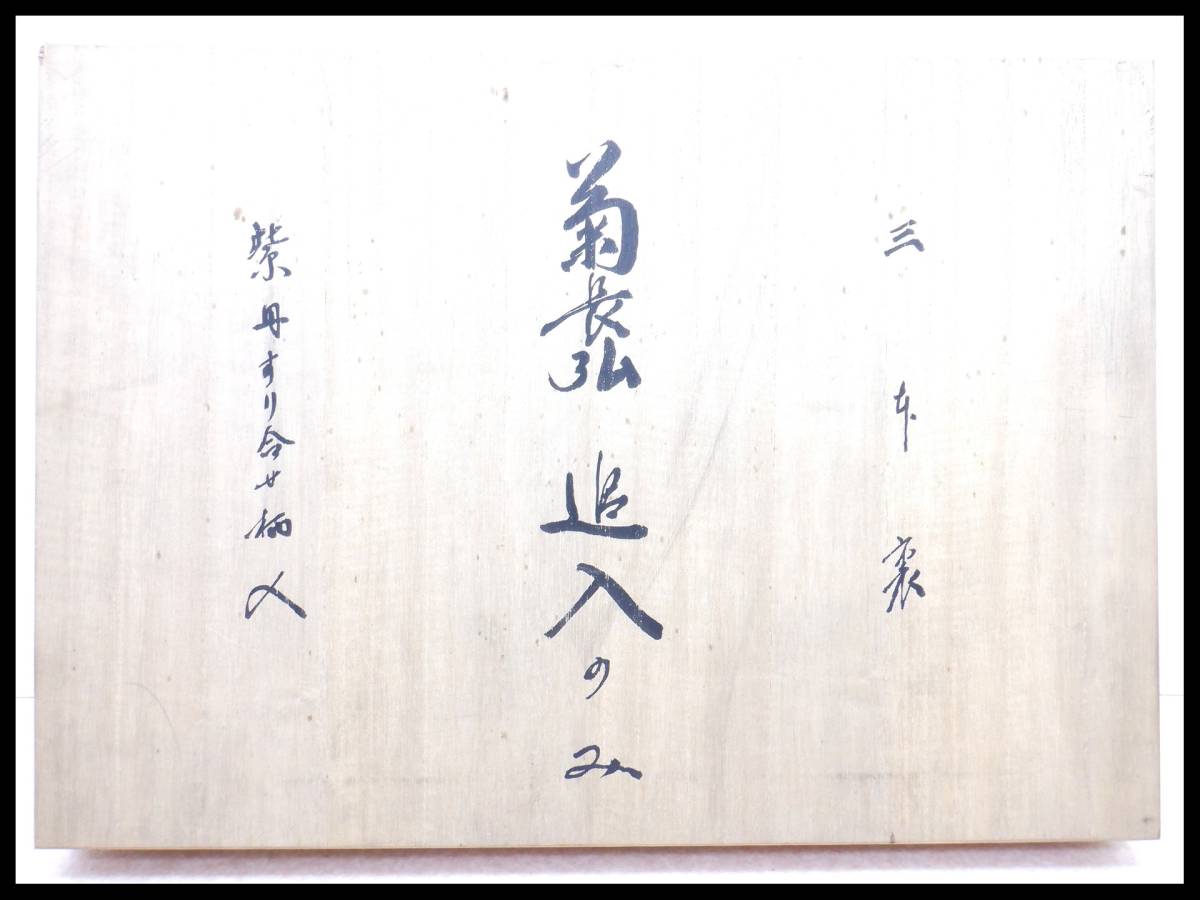 三本裏
菊長弘 追入のみ
紫丹すり合せ柄入